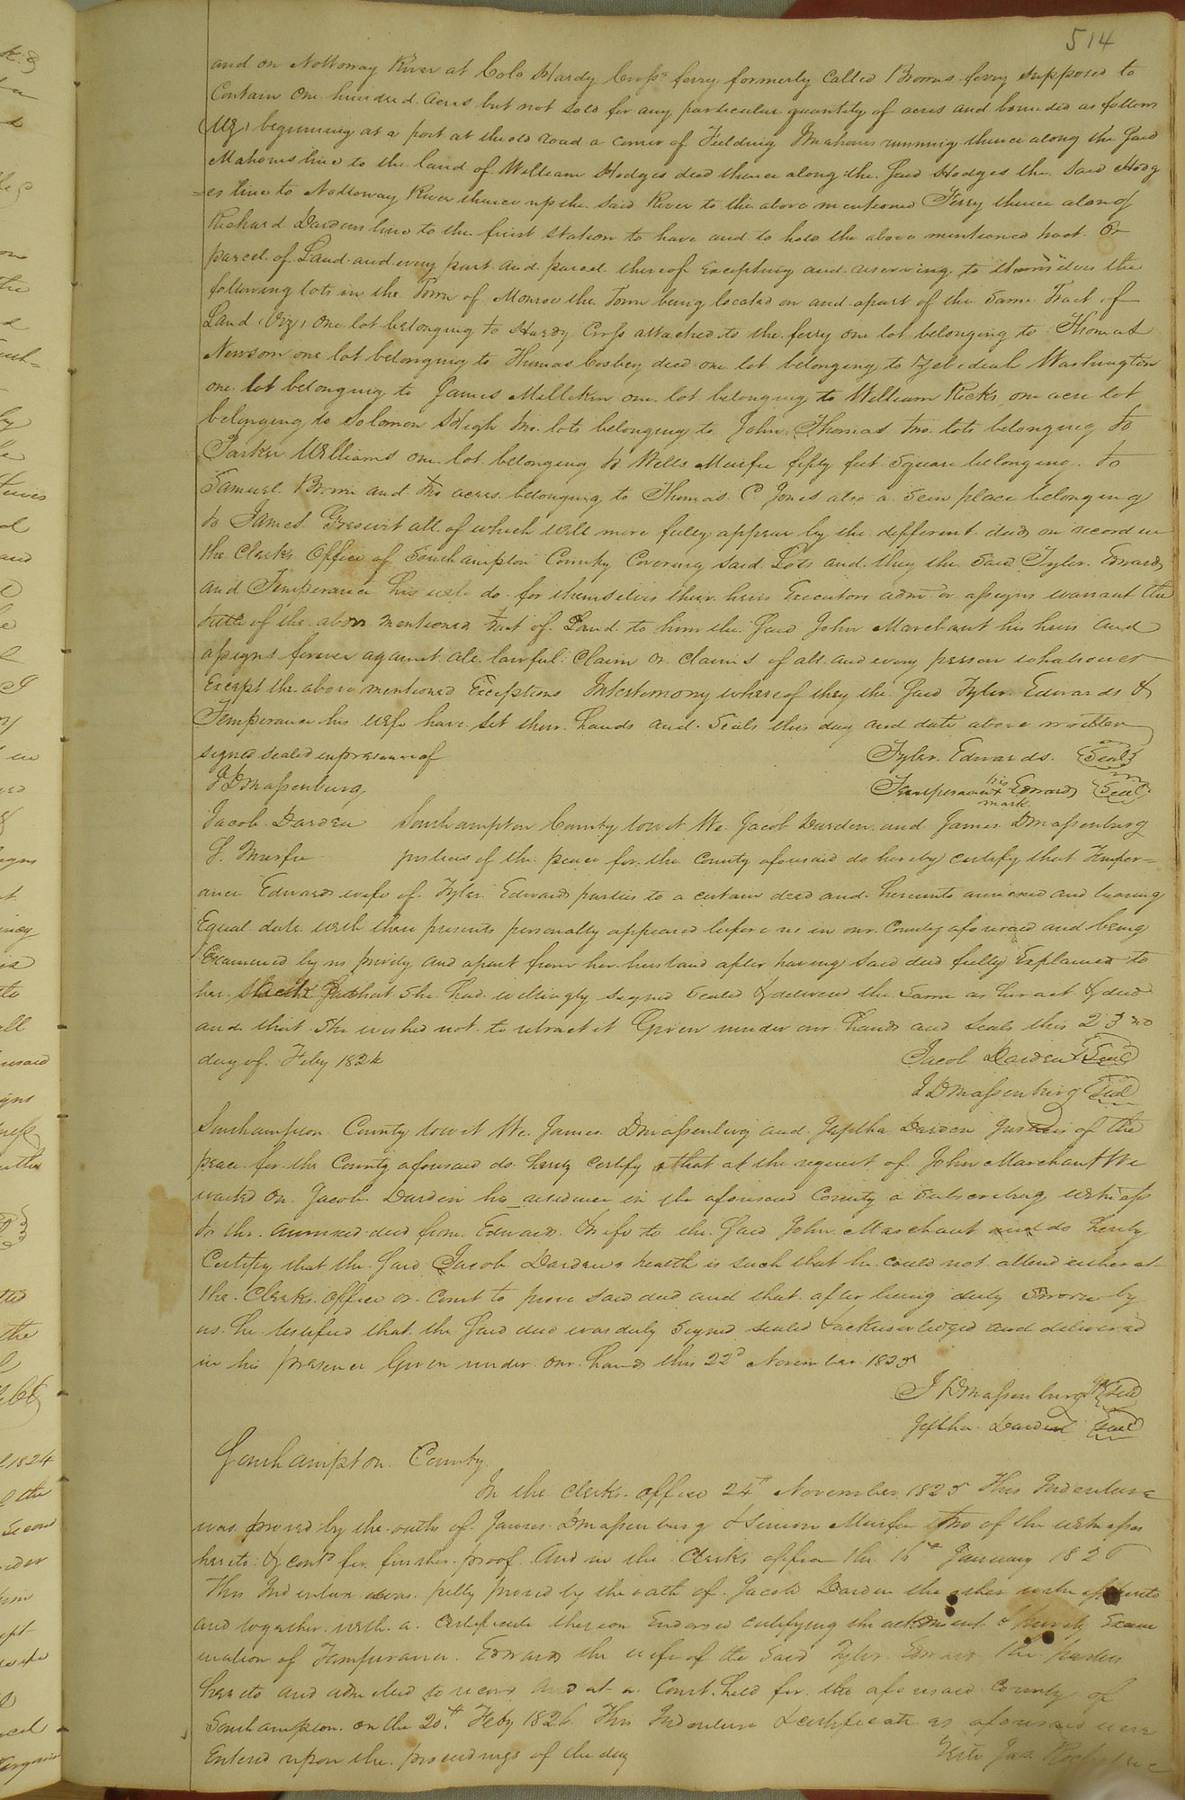 514
and on Nottoway River at Colo Hardy Cross ferry formerly Called Browns ferry supposed to
Contain One hundred Acres but not sold for any particular quantity of acres and bounded as follows
(Viz) beginning at a post at the old road a corner of Fielding Mahones running thence along the Said
Mahones line to the land of William Hodges decd thence along the Said Hodges the Said Hodg
=es line to Nottoway River thence up the Said River to the above mentioned Ferry thence along
Richard Dardens line to the first Station to have and to hold the above mentioned tract Or
parcel of Land and every part and parcel thereof Excepting and reserving to themselves the
following lots in the Town of Monroe the Town being located on and apart of the Same Tract of
Land (Viz) One lot belonging to Hardy Cross attached to the ferry one lot belonging to Thomas
Newsom one lot belonging to Thomas Cosbey decd one lot belonging to Zebedeah Washington
one lot belonging to James Millikin one lot belonging to William Ricks one acre lot
belonging to Solomon High two lots belonging to John Thomas two lots belonging to
Parker Williams one lot belonging to Wells Murfee fifty feet Square belonging to
Samuel Brown and two acres belonging to Thomas C Jones also a Sein place belonging
to James all of which will more fully appear by the different deeds on record in
the Clerks Office of Southampton County Covering Said Lots and they the Said Tyler Edwards
and Temperance his wife do for themselves their heirs Executors admr or assigns warrant the
title of the above mentioned tract of Land to him the Said John Marchant his heirs and
assigns forever against all lawful Claim or Claims of all and every person whatsoever
Except the above mentioned Exceptions In testimony whereof they the Said Tyler Edwards &
Temperance his Wife have Set their hands and Seals this day and date above written
signed sealed in presence of Tyler Edwards (Seal)
J D Massenburg Temperance his mark Edwards (Seal)
Jacob Darden Southampton County towit We Jacob Darden and James D Massenburg
S. Murfee justices of the peace for the County aforesaid do hereby certify that Temper=
ance Edwards wife of Tyler Edwards parties to a certain deed and hereunto annexed and bearing
Equal date with these presents personally appeared before us in our County aforesaid and being
Examined by us privily and apart from her husband after having Said deed fully Explained to
her that She had willingly signed Sealed & delivered the Same as her act & deed
and that She wished not to retract it Given under our hands and Seals this 23rd
day of Feby 1824 Jacob Darden (Seal)
J D Massenburg (Seal)
Southampton County towit We James D Massenburg and Jeptha Darden Justices of the
peace for the County aforesaid do hereby Certify that at the request of John Marchant We
waited On Jacob Darden his residence in the aforesaid County a Subscribing witness
to the annexed deed from Edwards & wife to the Said John Marchant and do hereby
Certify that the Said Jacob Dardens health is such that he could not attend either at
the Clerks Office or Court to prove Said deed and that after being duly Sworn by
us he testified that the Said deed was duly Signed sealed & acknowledged and delivered
in his presence Given under our hands this 22d November 1825
J D Massenburg (Seal)
Jeptha Darden (Seal)
Southampton County
In the Clerks office 24th November 1825 This Indenture
was proved by the oaths of James D Massenburg & Simon Murfee two of the witnesses
hereto & contd for further proof And in the Clerks office the January 1826
This Indenture was fully proved by the oath of Jacob Darden the other witness hereto
and together with a Certificate thereon Endorsed certifying the acknment & privily Exam
ination of Temperance Edwards the wife of the Said Tyler Edwards the parties
hereto and admitted to record And at a Court held for the aforesaid County of
Southampton on the 20th Feby 1826 This Indenture & certificate as aforesaid were
Entered upon the proceedings of the day Teste Jas Rochelle